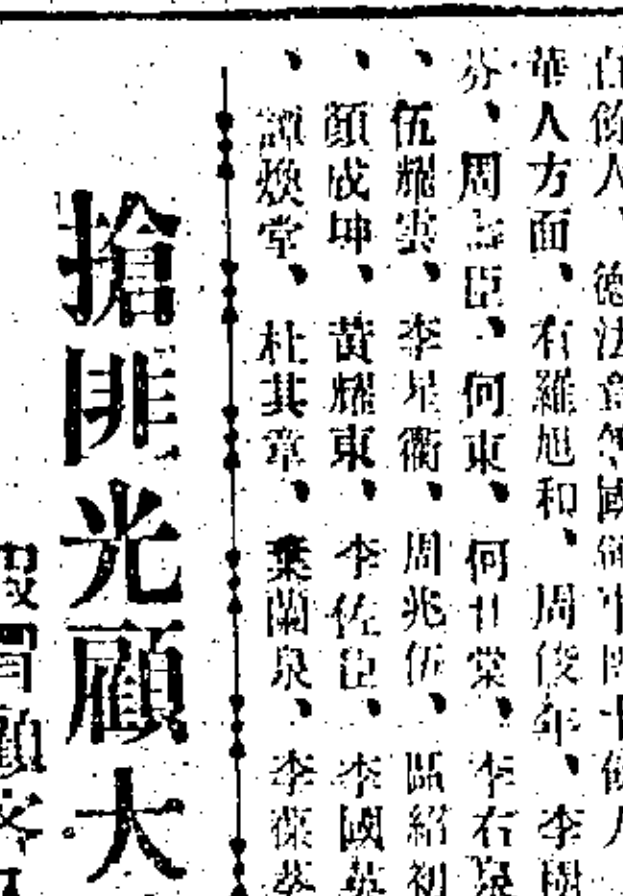 人、德法意等國領事
華人方面、有羅旭和、周俊年、李樹
芬、周壽臣、何東、何甘棠、李右泉
、伍耀雲、李星衢、周兆伍、區紹初
、顏成坤、黃耀東、李佐臣、李國
、譚煥堂、杜其章、葉蘭泉、李葆葵
搶匪光顧大
冒顧客